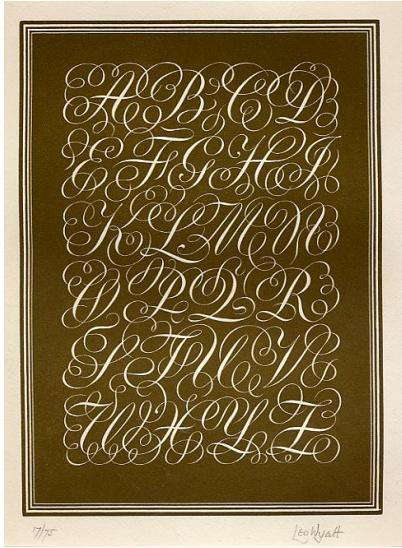 A B C D
E F G H I
K L M N
O P Q R
S T U V
W X Y Z
17/75 Leo Wyatt